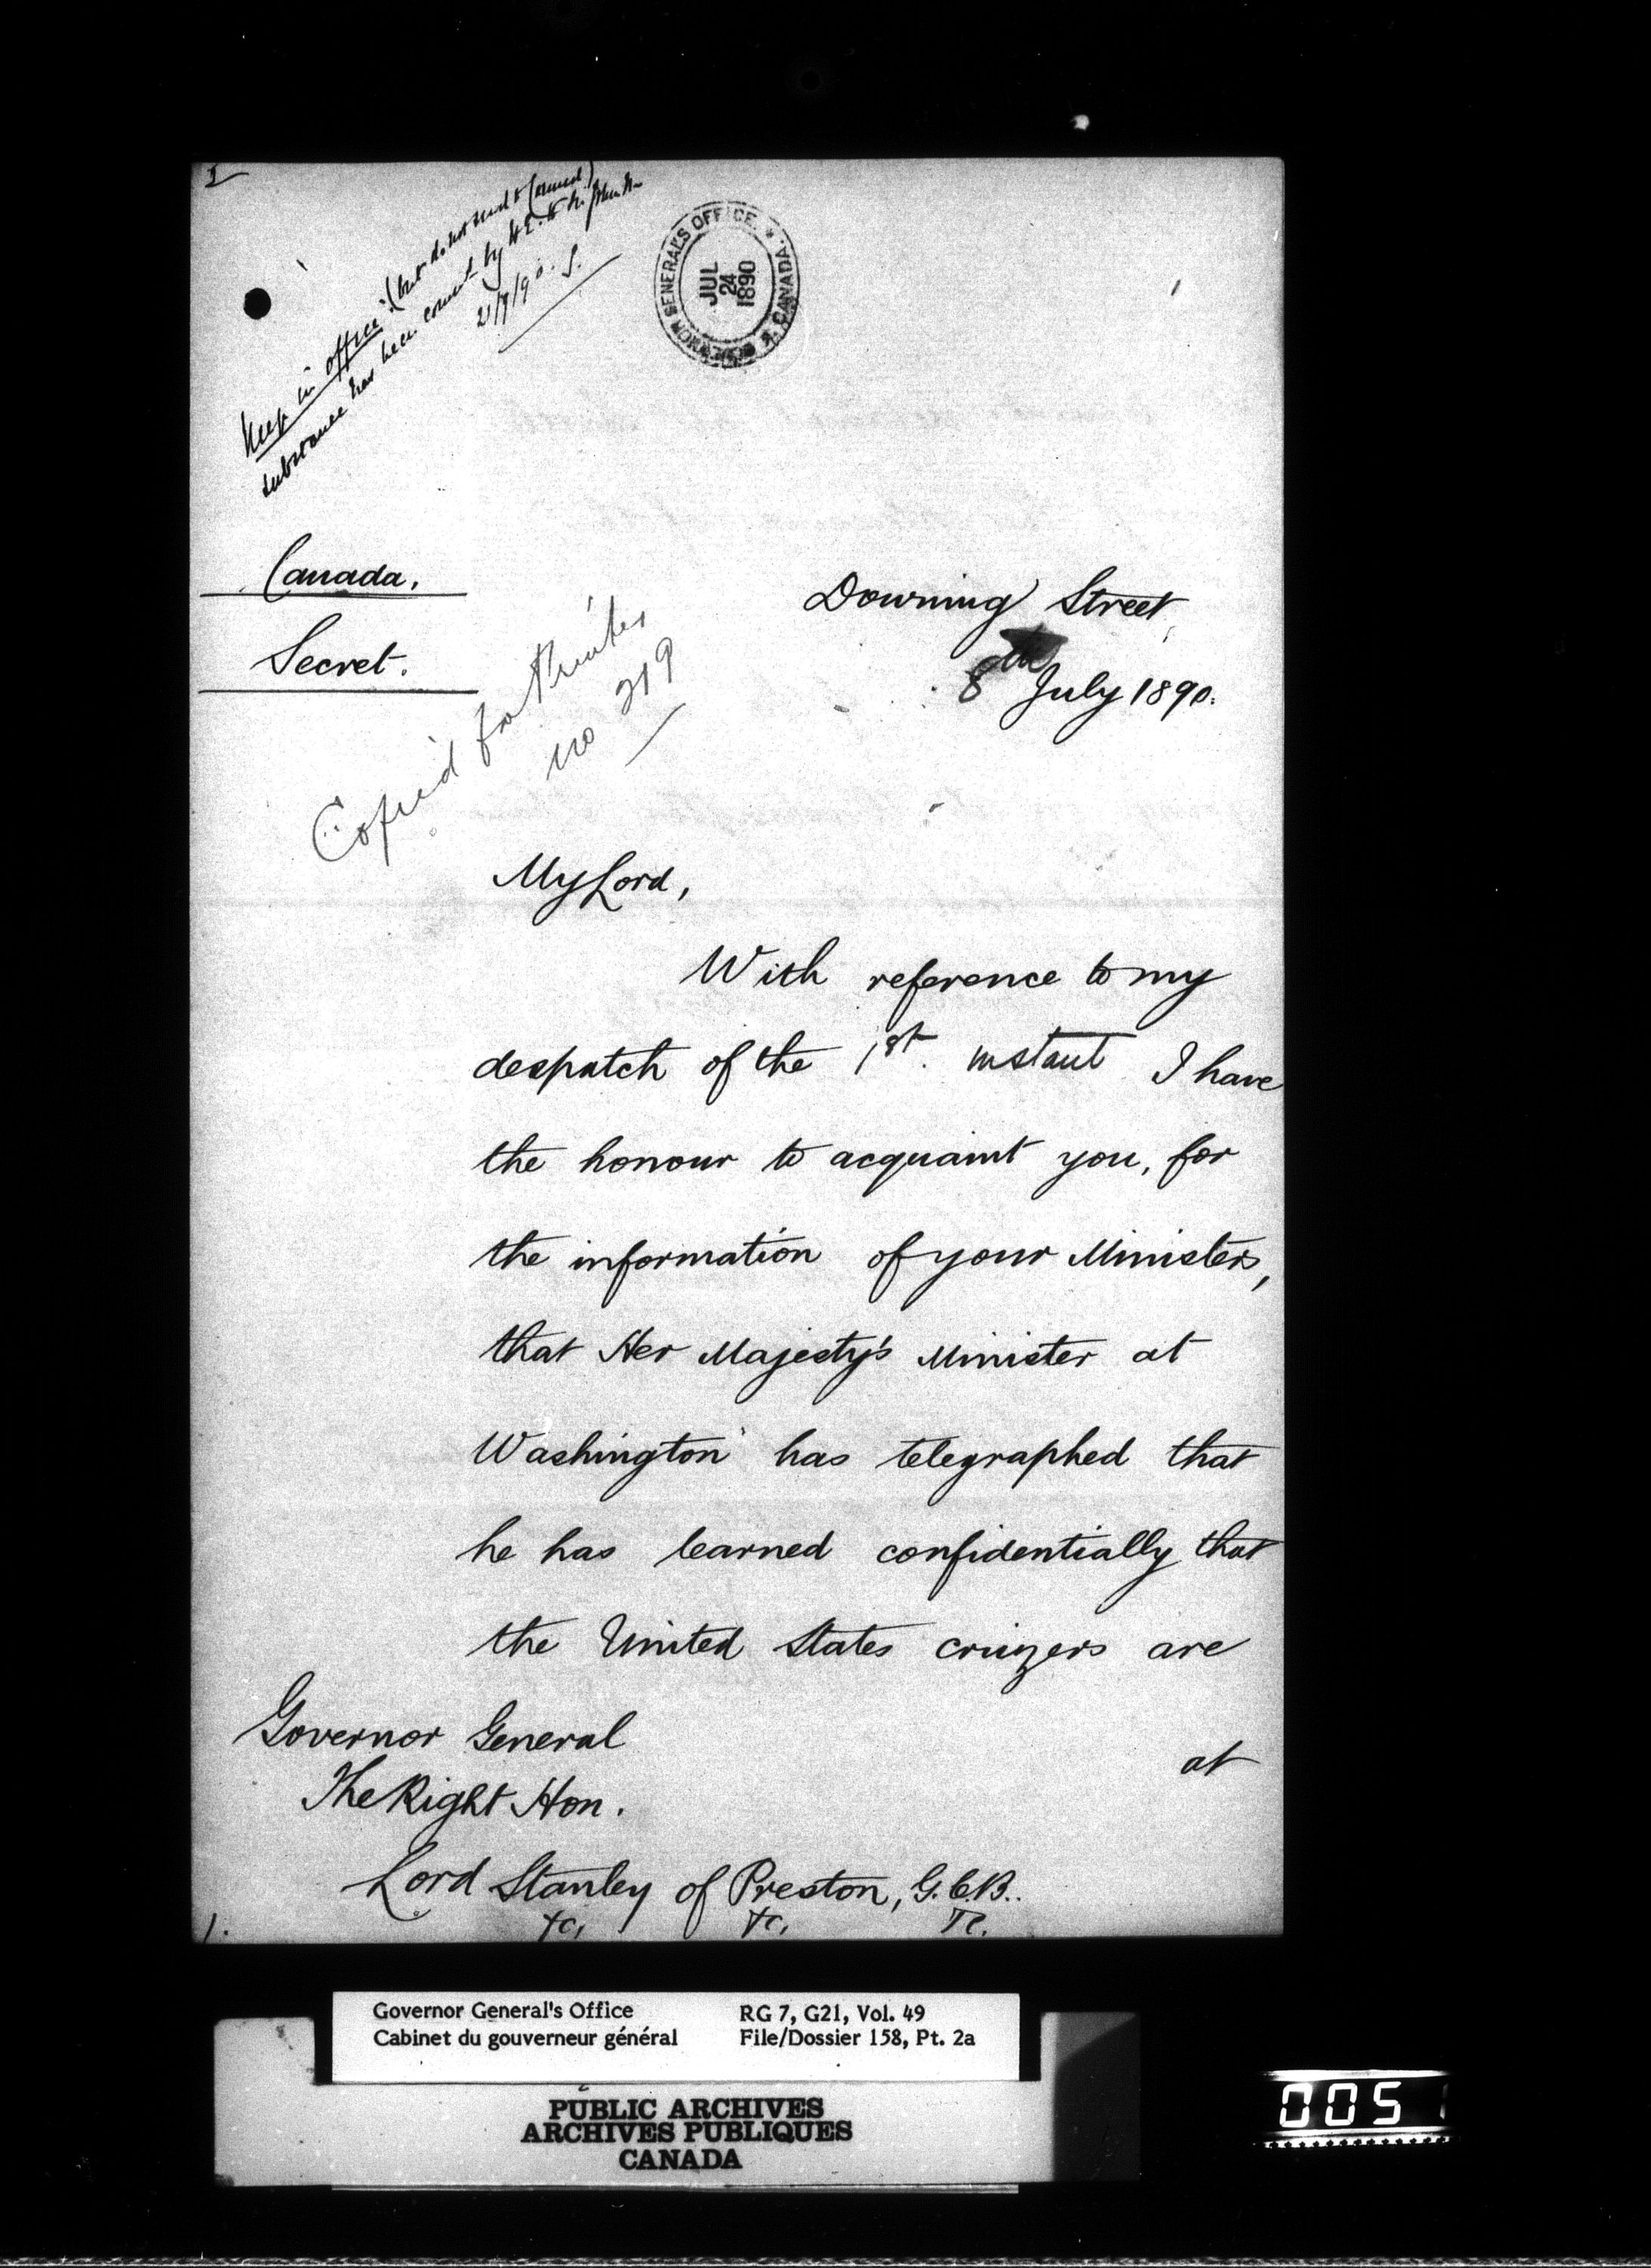 2
Keep in office: (but do not send to Council)
substance has been commd by H.E. to Sir John
21/7/90. S.
GOVERNOR GENERAL'S OFFICE. CANADA.
JUL
24
1890
Canada.
Secret.
Downing Street,
8th July 1890.
Copied for Printer
no 219
My Lord,
With reference to my
despatch of the 1st. instant I have
the honour to acquaint you, for
the information of your Ministers,
that Her Majesty's Minister at
Washington has telegraphed that
he has learned confidentially that
the United States cruizers are
at
Governor General
The Right Hon.
Lord Stanley of Preston, G.C.B.
&c, &c, &c.
1.
Governor General's Office RG 7, G21, Vol. 49
Cabinet du gouverneur général File/Dossier 158, Pt. 2a
PUBLIC ARCHIVES
ARCHIVES PUBLIQUES
CANADA
005